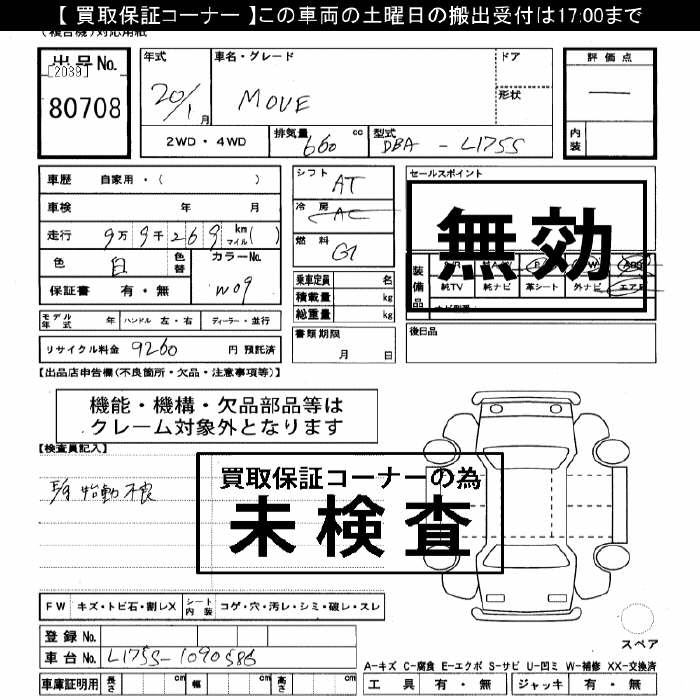 【 買取保証コーナー 】この車両の土曜日の搬出受付は17:00まで
出品No.
[2039]
80708
年式
20/1月
車名・グレード
MOVE
ドア
形状
評価点
内装
2WD・4WD
排気量 660 cc
型式 DBA - L175S
車歴 自家用・( )
車検 年 月
走行 9万9千269 km マイル( )
色 白 色替
カラーNo. W09
保証書 有・無
シフト AT
冷房 AC
燃料 G
乗車定員 名
積載量 kg
総重量 kg
セールスポイント
無効
装備品
純TV 純ナビ 革シート 外ナビ エアB
モデル年式 年 ハンドル 左・右 ディーラー・並行
書類期限
月 日
後日品
リサイクル料金 9260 円 預託済
【出品店申告欄(不良箇所・欠品・注意事項等)】
機能・機構・欠品部品等は
クレーム対象外となります
【検査員記入】
始動不良
買取保証コーナーの為
未検査
FW キズ・トビ石・割レX シート内装 コゲ・穴・汚レ・シミ・破レ・スレ
登録No.
車台No. L175S-1090586
スペア
A-キズ C-腐食 E-エクボ S-サビ U-凹ミ W-補修 XX-交換済
車庫証明用 長さ cm 幅 cm 高さ cm
工具 有・無 ジャッキ 有・無